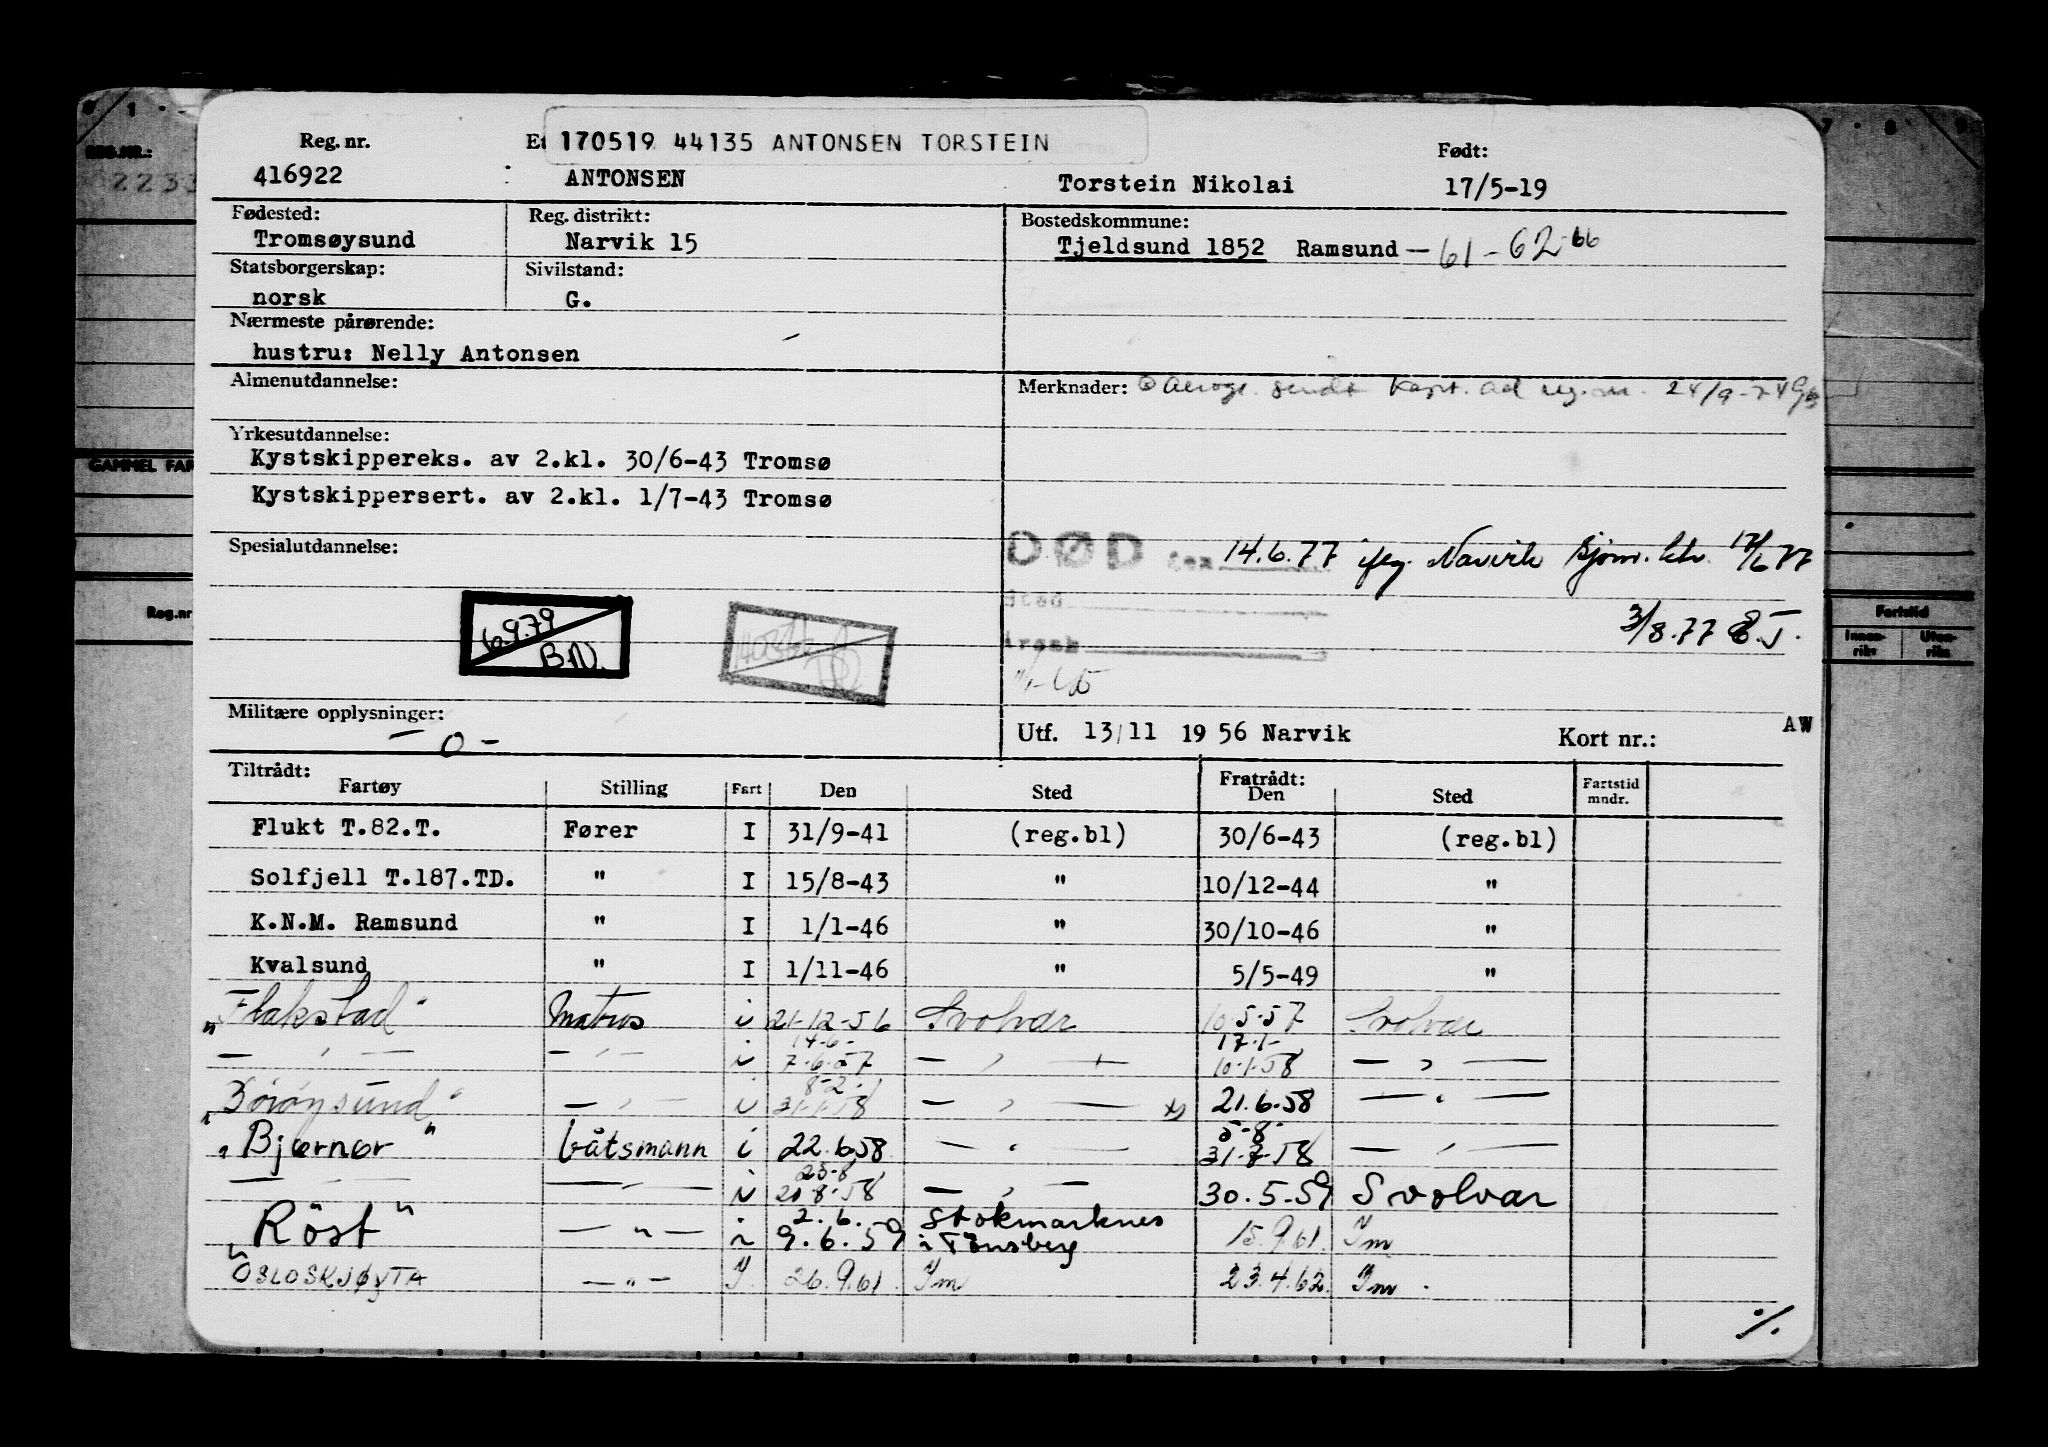 170519 44135 ANTONSEN TORSTEIN
Reg. nr. Et Født:
416922 ANTONSEN Torstein Nikolai 17/5-19
Fødested: Reg. distrikt: Bostedskommune:
Tromsøysund Narvik 15 Tjeldsund 1852 Ramsund — 61 - 62-66
Statsborgerskap: Sivilstand:
norsk G.
Nærmeste pårørende:
hustru: Nelly Antonsen
Almenutdannelse: Merknader: sendt 24/9-74
Yrkesutdannelse:
Kystskippereks. av 2.kl. 30/6-43 Tromsø
Kystskippersert. av 2.kl. 1/7-43 Tromsø
Spesialutdannelse: DØD den 14.6.77 iflg. Narvik sjøm. ktr. 17/6 77
Sted
Årsak
3/8.77
6.9.79
B.N.
Militære opplysninger: - o -
Utf. 13/11 19 56 Narvik Kort nr.: AW
Tiltrådt: Fratrådt:
Fartøy Stilling Fart Den Sted Den Sted Fartstid mndr.
Flukt T.82.T. Fører I 31/9-41 (reg.bl) 30/6-43 (reg.bl)
Solfjell T.187.TD. " I 15/8-43 " 10/12-44 "
K.N.M. Ramsund " I 1/1-46 " 30/10-46 "
Kvalsund " I 1/11-46 " 5/5-49 "
"Flakstad" Matros i 21-12-56 Svolvær 10.5.57 Svolvær
14-6- 17-1-
— " — — " — i 7.6.57 — " — 10.1.58 — " —
8-2-
— " — i 31.1.58 — " — 21.6.58 — " —
5-8-
"Bjørnør" båtsmann i 22.6.58 — " — 31.7.58 — " —
25-8
— " — — " — i 20.8.58 — " — 30.5.59 Svolvær
2.6. Stokmarknes
"Röst" — " — i 9.6.59 i Tönsberg 15.9.61. Im
OSLOSKJØYTA — " — I. 26.9.61. Im 23.4.62. Im.
·/.
REG.NR.:
GAMMEL FAR
Reg.nr
Fartstid
Innen-riks Uten-riks